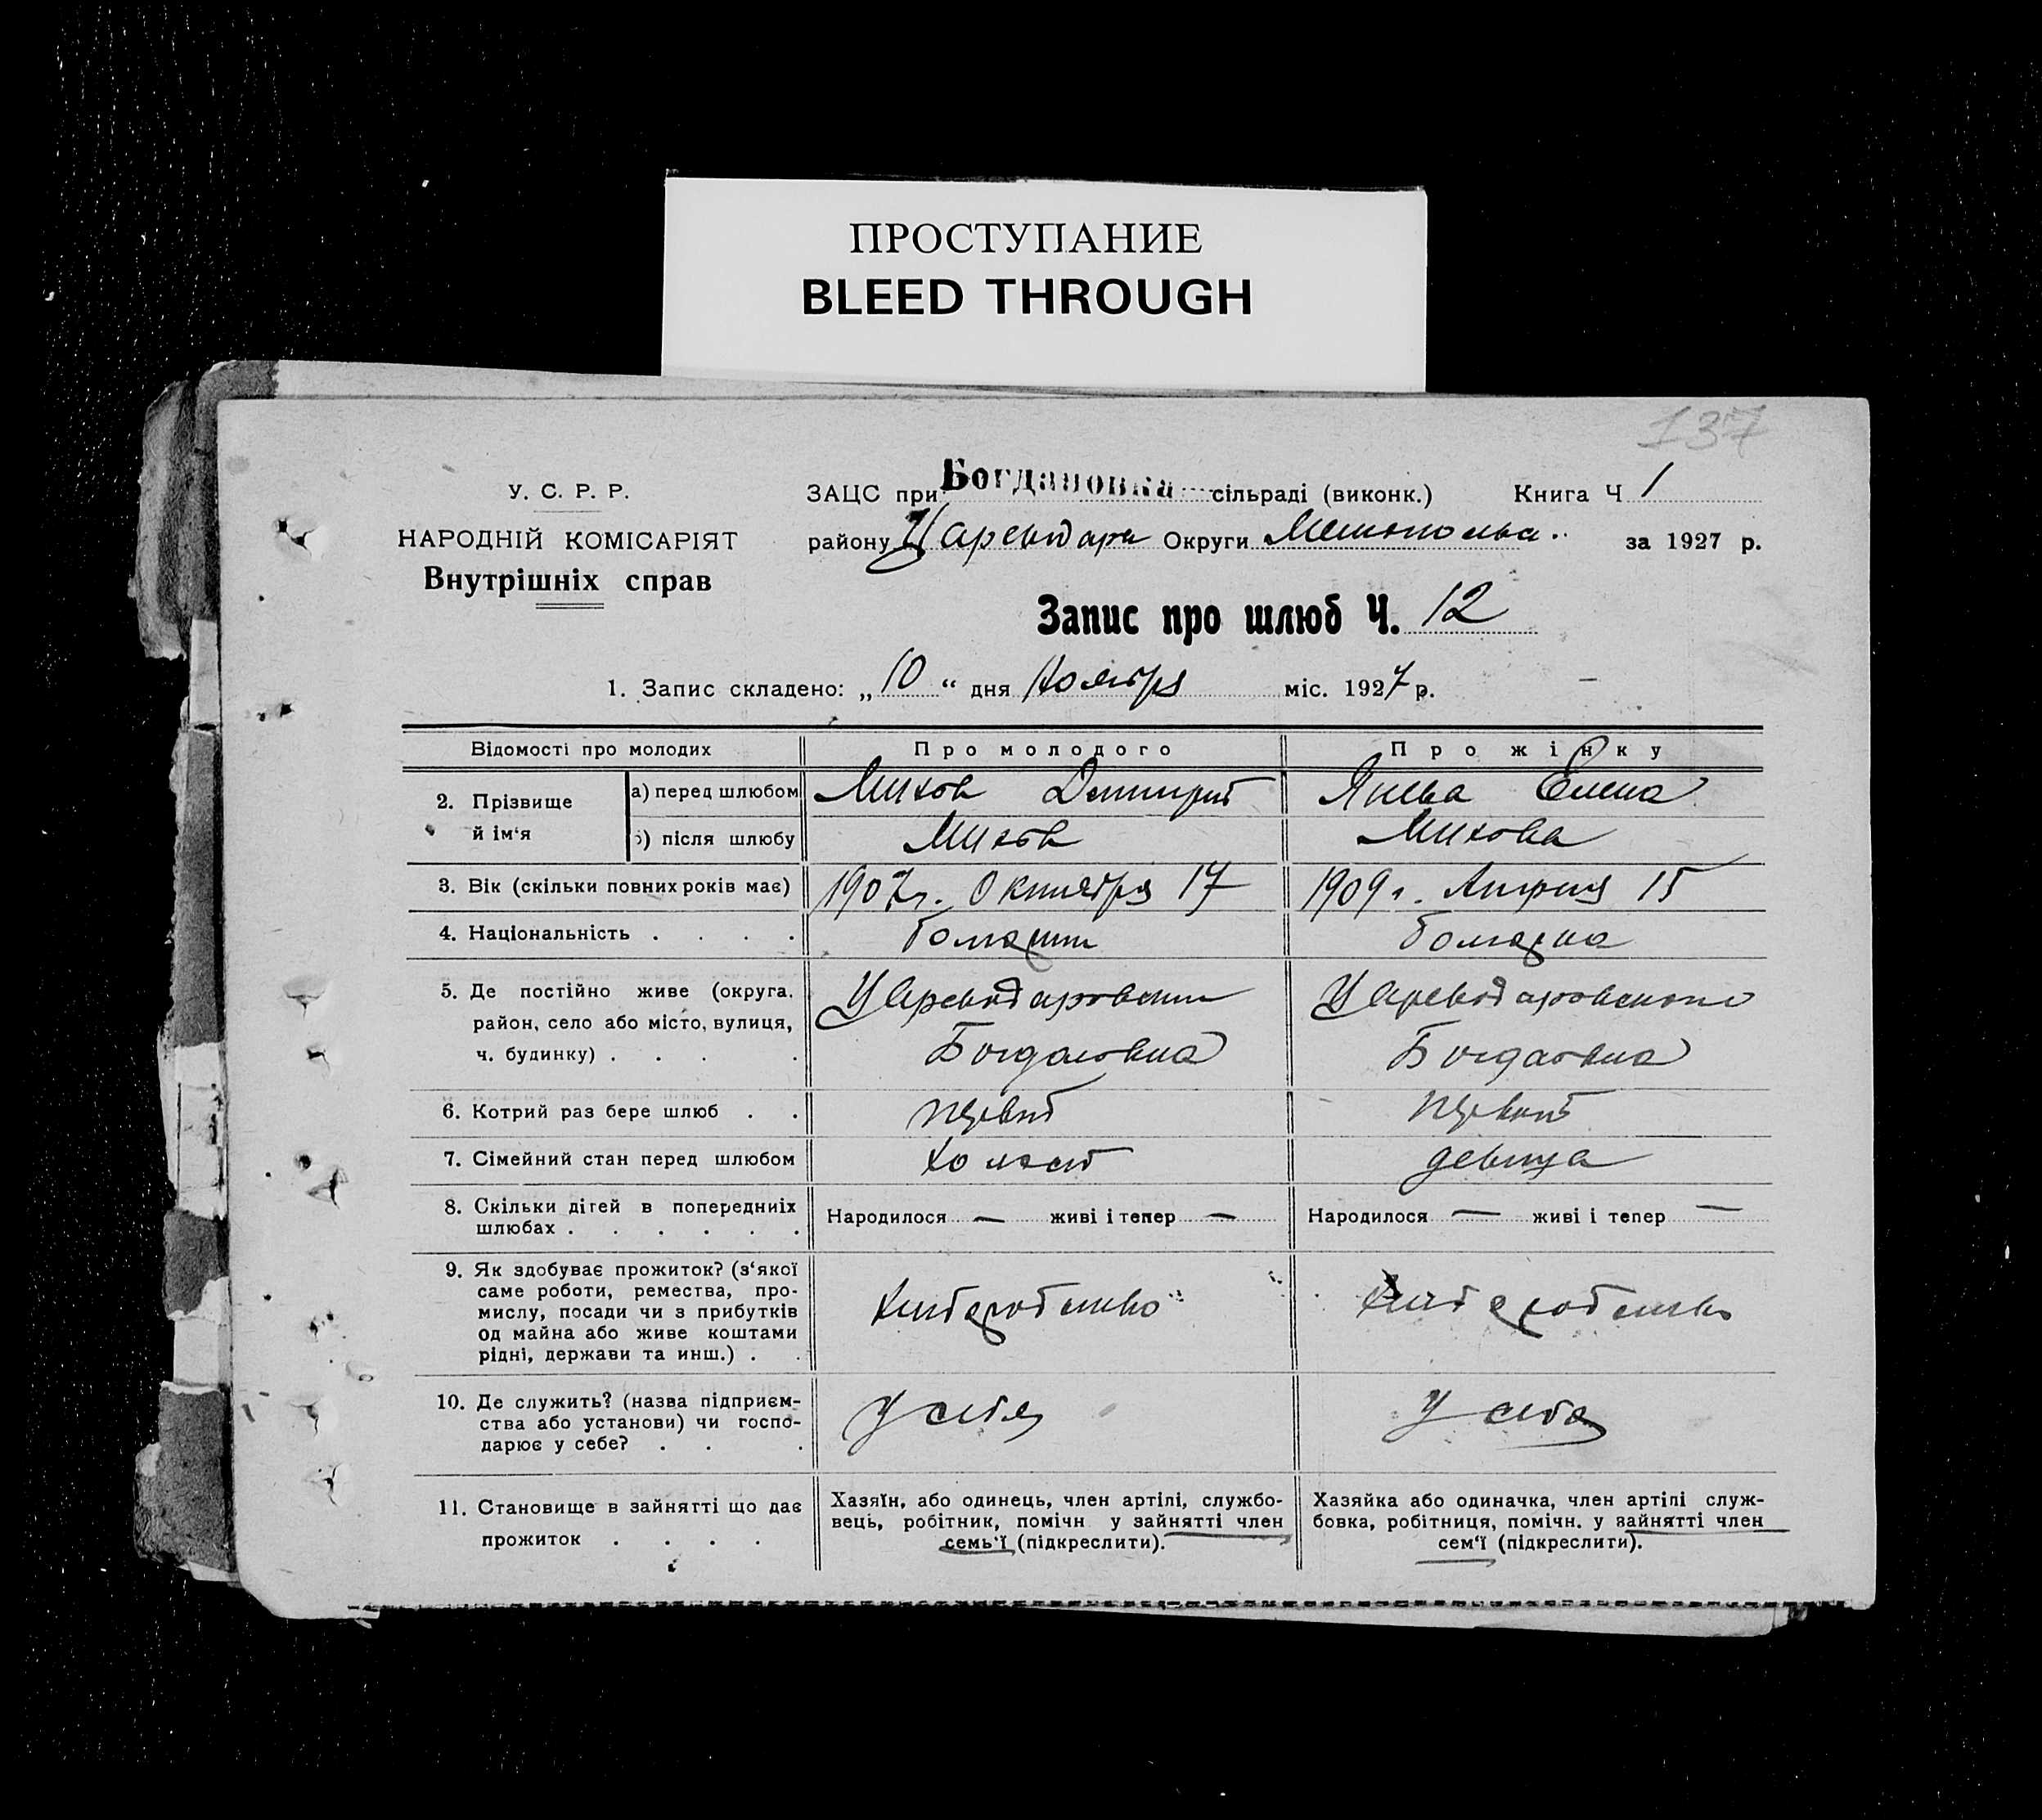 ПРОСТУПАНИЕ
BLEED THROUGH
137
У. С. Р. Р.
НАРОДНІЙ КОМІСАРІЯТ
Внутрішніх справ
ЗАЦС при Богдановка сільраді (виконк.) Книга Ч 1
району Царевдара Округи за 1927 р.
Запис про шлюб Ч. 12
1. Запис складено: „10“ дня Ноября міс. 1927 р.
Відомості про молодих Про молодого Про жінку
2. Прізвище й ім‘я
а) перед шлюбом Михов Дмитрий Янева Елена
б) після шлюбу Михов Михова
3. Вік (скільки повних років має) 1907г. Октября 17 1909г. Апреля 15
4. Національність . . . . болгарин болгарка
5. Де постійно живе (округа,
район, село або місто, вулиця,
ч. будинку) . . . .
Цареводаровский
Богдановка
Цареводаровского
Богдановка
6. Котрий раз бере шлюб . . первый первый
7. Сімейний стан перед шлюбом холост девица
8. Скільки дітей в попередніх
шлюбах . . . . . .
Народилося — живі і тепер —
Народилося — живі і тепер —
9. Як здобуває прожиток? (з‘якої
саме роботи, ремества, про-
мислу, посади чи з прибутків
од майна або живе коштами
рідні, держави та инш.) . .
хлеборобство
хлеборобство
10. Де служить? (назва підприєм-
ства або установи) чи госпо-
дарює у себе? . . .
у себя
у себя
11. Становище в зайнятті що дає
прожиток . . . .
Хазяїн, або одинець, член артілі, службо-
вець, робітник, помічн у зайнятті член
семь‘ї (підкреслити).
Хазяйка або одиначка, член артілі служ-
бовка, робітниця, помічн. у зайнятті член
сем‘ї (підкреслити).